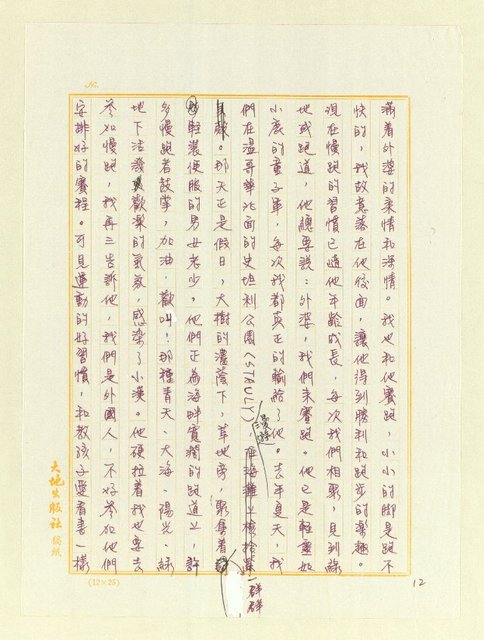 滿着外婆的柔情和深情。我也和他賽跑，小小的脚是跑不
快的，我故意落在他後面，讓他得到勝利和跑步的樂趣。
現在慢跑的習慣已隨他年齡成長，每次我們相聚，見到綠
地或跑道，他總要說：外婆，我們來賽跑。他已是輕盈如
小鹿的童子軍，每次我都真正的輸給了他。去年夏天，我
們在溫哥華北面的史坦利公園(STAULY)，漫遊
那天正是假日，大樹的濃蔭下，草地旁，聚集着一群群
輕裝便服的男女老少，他們正為海畔寬濶的跑道上，許
多慢跑者鼓掌，加油，歡叫！那種青天、大海、陽光、綠
地下活潑歡樂的氣氛，感染了小漢。他硬拉着我也要去
參加慢跑，我再三告訴他，我們是外國人，不好參加他們
安排好的賽程。可見運動的好習慣，和教孩子愛看書一樣
No.
大地出版社 稿紙
(12×25)
12